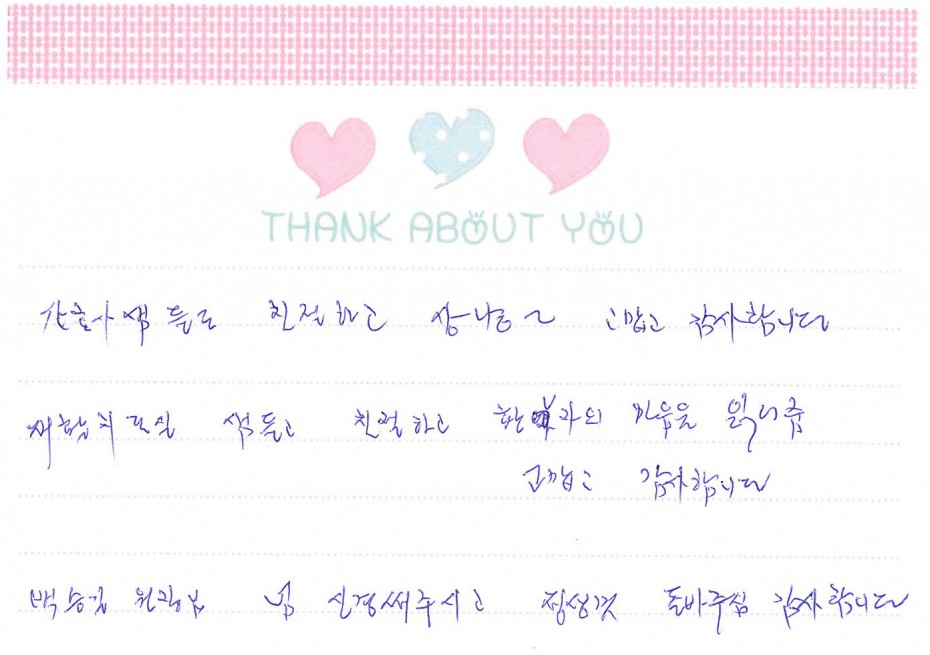 THANK ABOUT YOU
간호사쌤들도 친절하고 상냥 고맙고 감사합니다
재활치료실 쌤들도 친절하고 환자의 마음을 읽어줌
고맙고 감사합니다
원장님 넘 신경써주시고 정성껏 돌봐주심 감사합니다